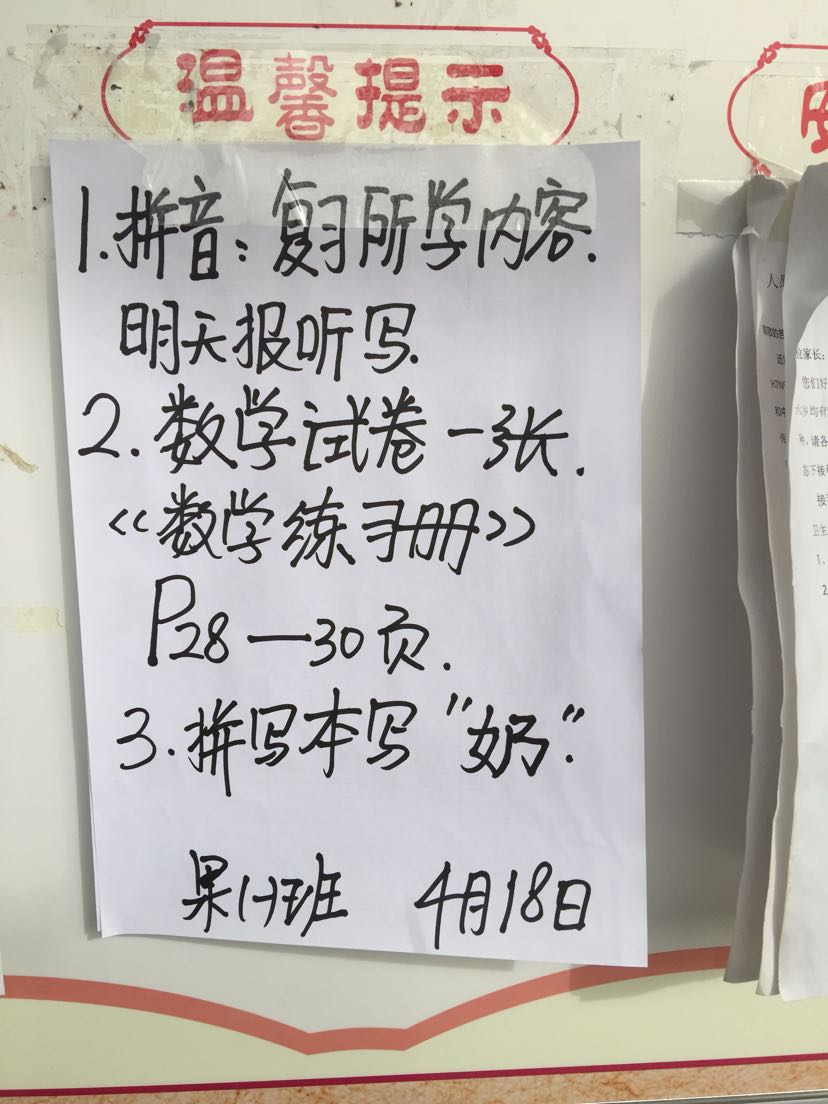 温馨提示
1.拼音：复习所学内容.
明天报听写.
2.数学试卷一张.
《数学练习册》
P28—30页.
3.拼写本写"奶".
果班 4月18日
家长：
您们好
六岁均有
请各
卫生
1、
2